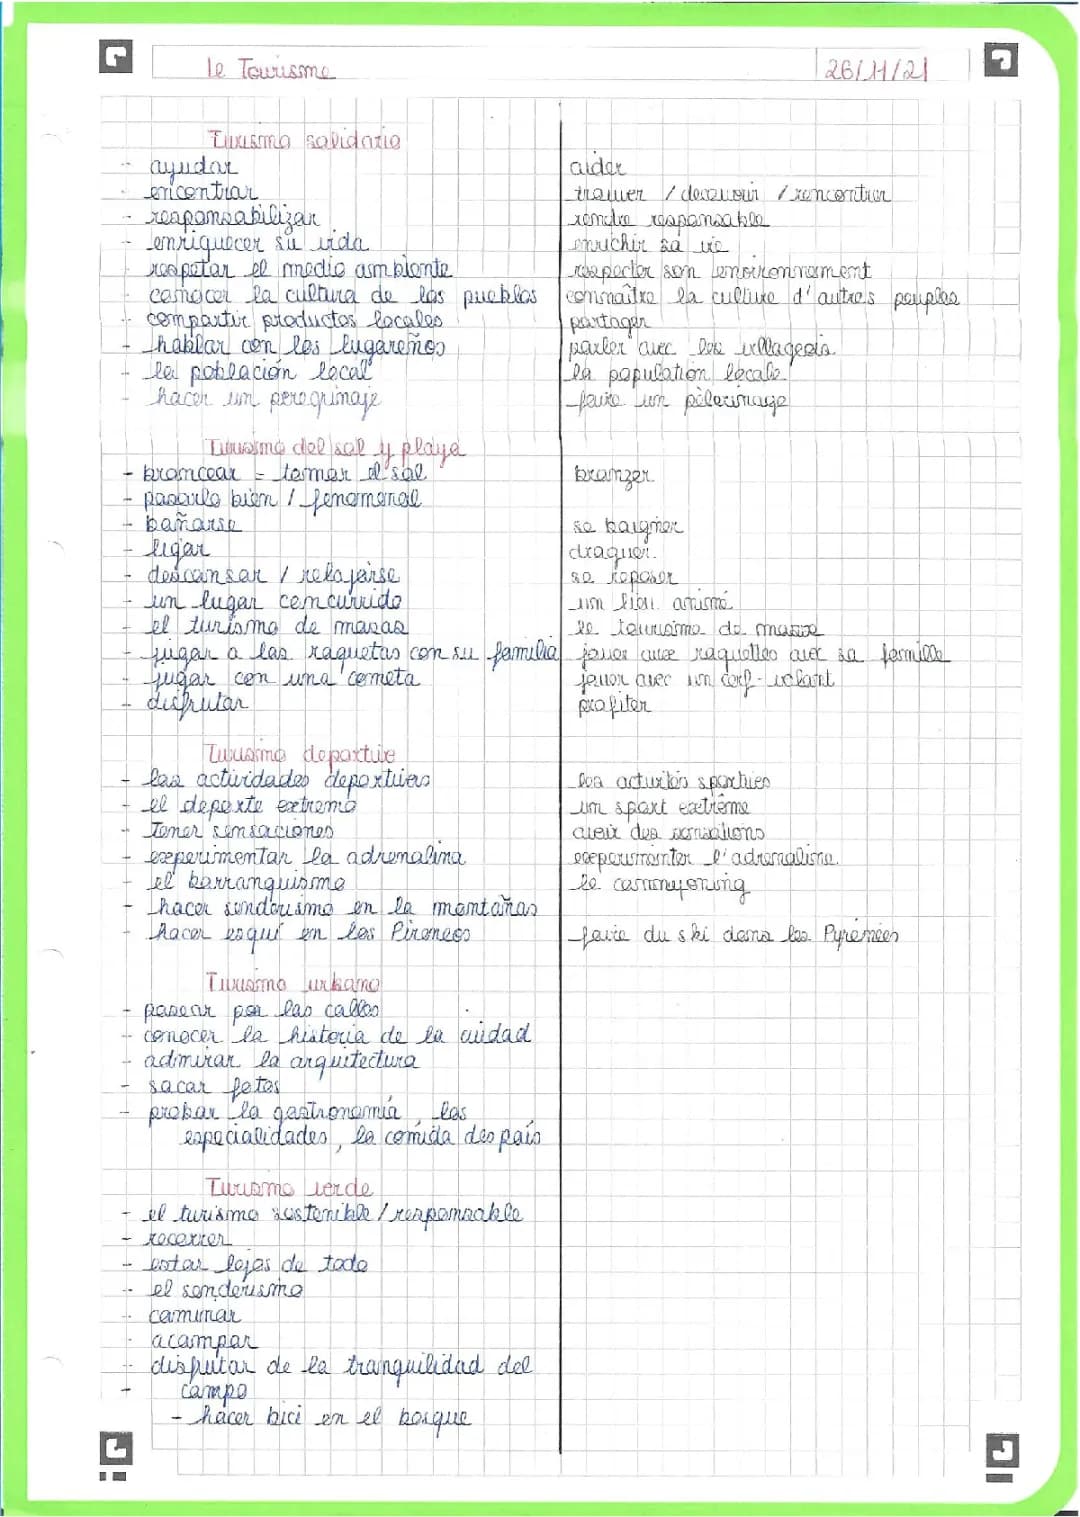 le Tourisme 26/11/21
Turismo solidario
- ayudar aider
- encontrar trouver / découvrir / rencontrer
- responsabilizar rendre responsable
- enriquecer su vida enrichir sa vie
- respetar el medio ambiente respecter son environnement
- conocer la cultura de los pueblos connaître la culture d'autres peuples
- compartir productos locales partager
- hablar con los lugareños parler avec les villageois
- la población local la population locale
- hacer un peregrinaje faire un pèlerinage
Turismo del sol y playa
- broncear = tomar el sol bronzer
- pasarlo bien / fenomenal
- bañarse se baigner
- ligar draguer.
- descansar / relajarse se reposer
- un lugar concurrido un lieu animé
- el turismo de masas le tourisme de masse
- jugar a las raquetas con su familia jouer avec raquettes avec sa famille
- jugar con una cometa jouer avec un cerf-volant
- disfrutar profiter
Turismo deportivo
- las actividades deportivas les activités sportives
- el deporte extremo un sport extrême
- Tener sensaciones avoir des sensations
- experimentar la adrenalina expérimenter l'adrénaline.
- el barranquismo le cannyoning
- hacer senderismo en la montañas
- hacer esquí en los Pireneos faire du ski dans les Pyrénées
Turismo urbano
- pasear por las calles
- conocer la historia de la cuidad
- admirar la arquitectura
- sacar fotos
- probar la gastronomía, las
especialidades, la comida des país
Turismo verde
- el turismo sostenible / responsable
- recorrer
- estar lejos de todo
- el senderismo
- caminar
- acampar
- disfrutar de la tranquilidad del
- campo
- hacer bici en el bosque